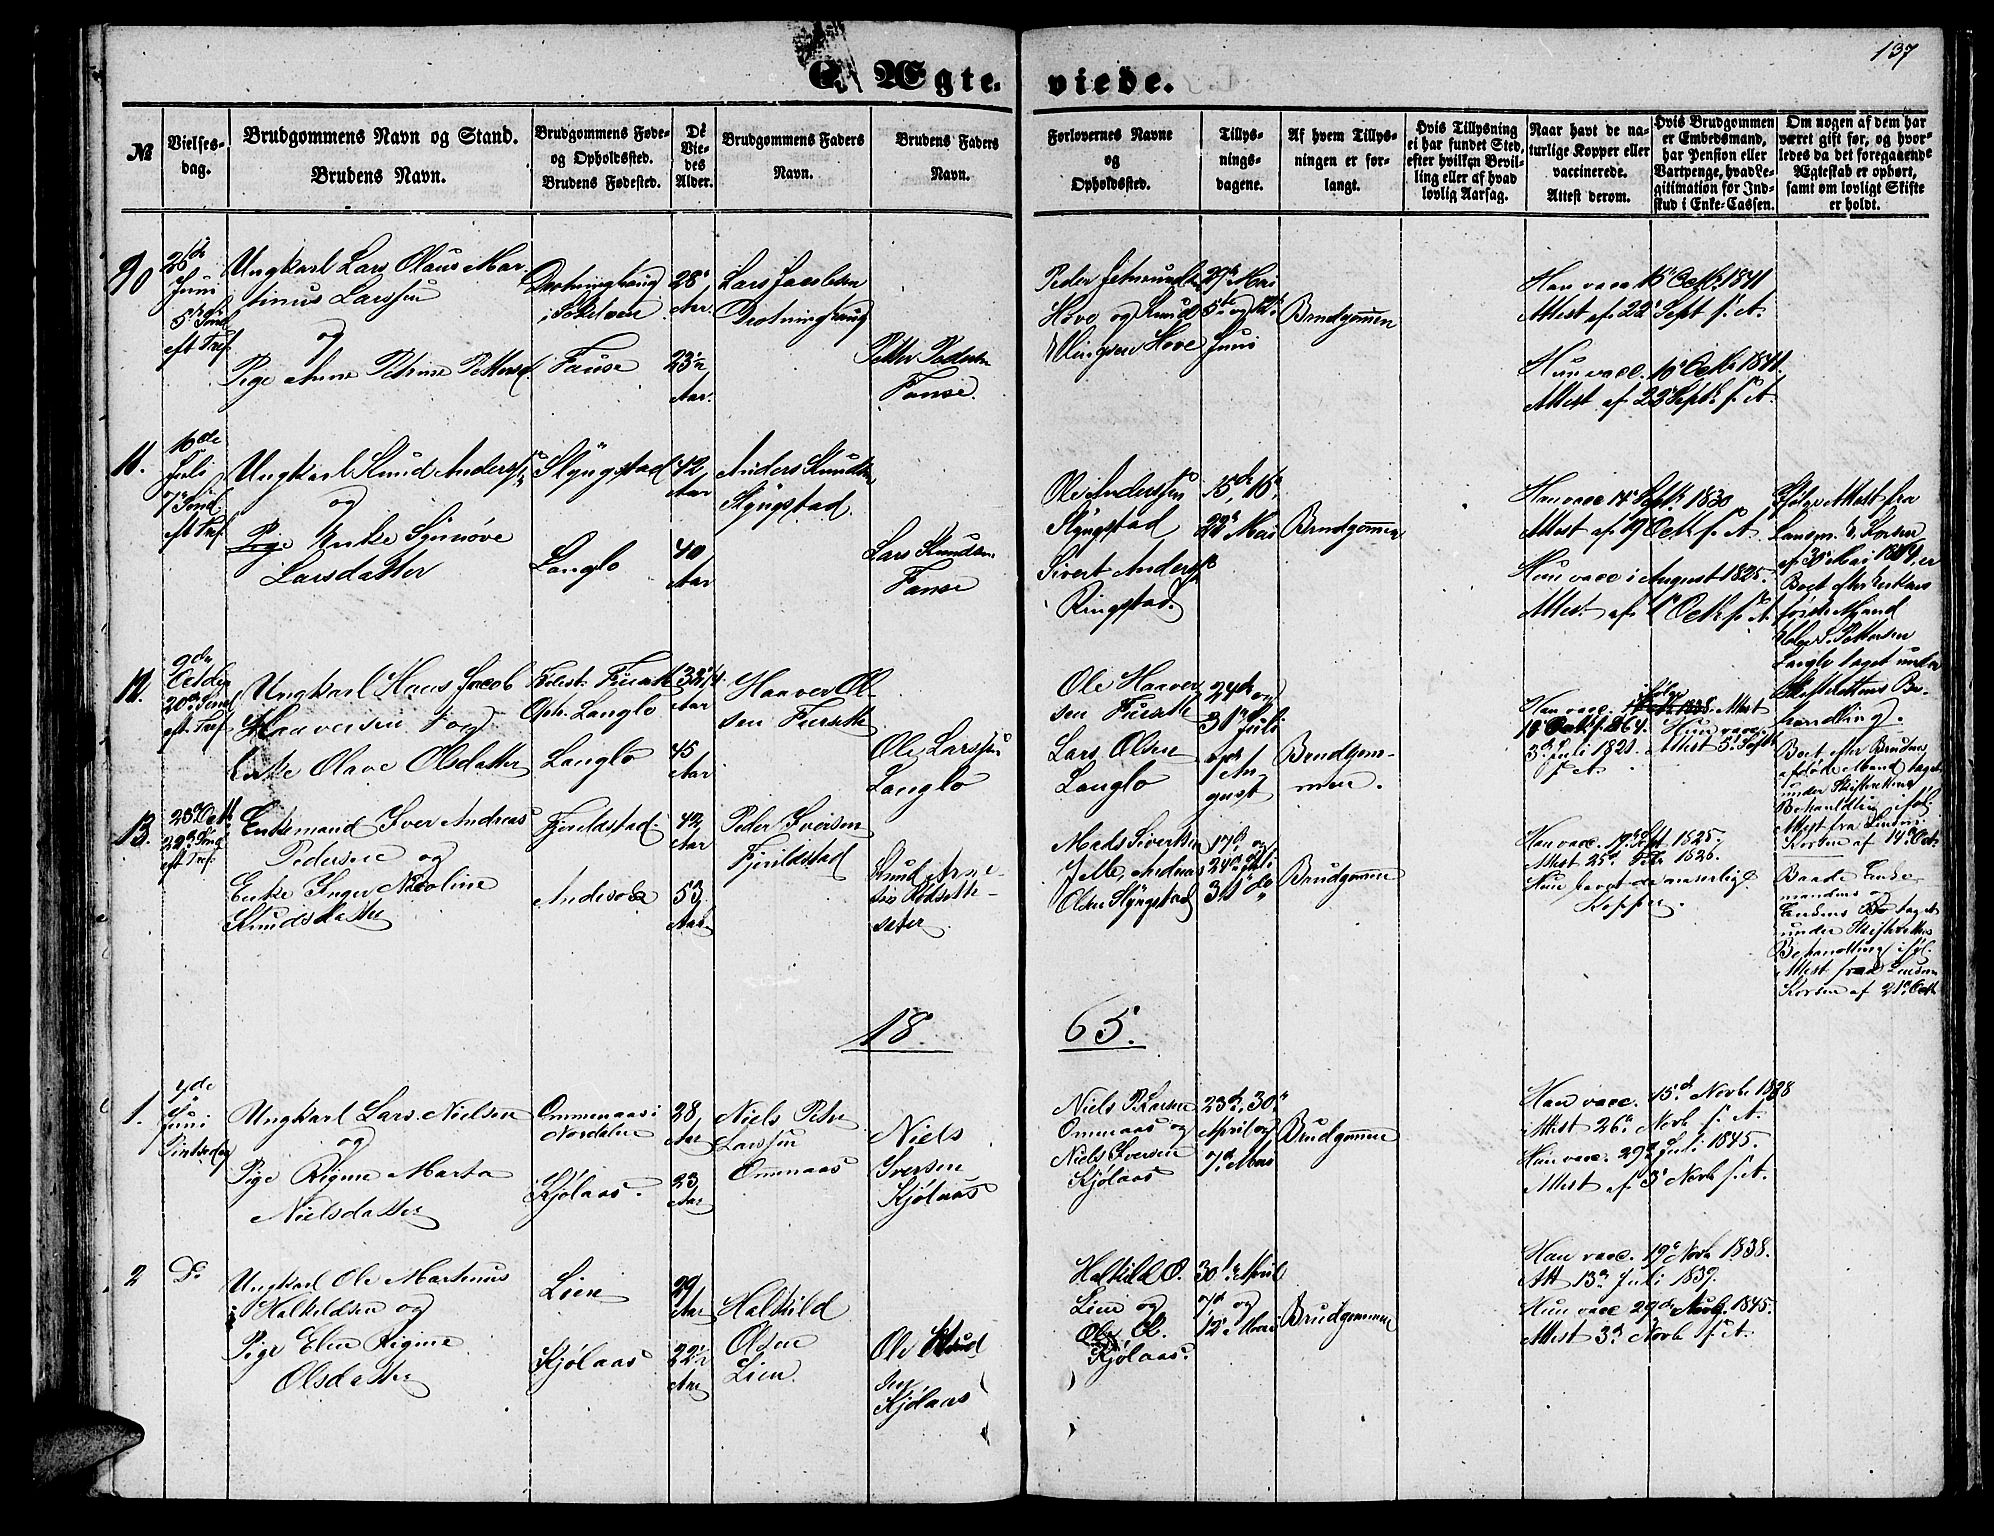 137
Ægte-
viede.
No
Vielses-
dag.
Brudgommens Navn og Stand.
Brudens Navn.
Brudgommens Føde-
og Opholdssted.
Brudens Fødested.
De
Vie-
des
Alder.
Brudgommens Faders
Navn.
Brudens Faders
Navn.
Forlovernes Navne
og
Opholdssted.
Tillys-
nings-
dagene.
Af hvem Tillys-
ningen er for-
langt.
Hvis Tillysning
ei har fundet Sted,
efter hvilken Bevil-
ling eller af hvad
lovlig Aarsag.
Naar havt de na-
turlige Kopper eller
vaccinerede.
Attest derom.
Hvis Brudgommen
er Embedsmand,
har Pension eller
Vartpenge, hvad Le-
gitimation for Ind-
skud i Enke-Cassen.
Om nogen af dem har
været gift før, og hvor-
ledes da det foregaaende
Ægteskab er ophørt,
samt om lovligt Skifte
er holdt.
26de
Juni
5te Sönd
eft Tref.
Ungkarl Lars Olaus Mar-
tinus Larssen
og
Pige Anne Petrine Pettersd.
Dronninghaug
i Søkelven
Fause
28
Aar.
23½
Aar.
Lars Jacobsen
Dronninghaug
Petter Pedersen
Fause.
Peder
Hove og Knud
Hove
29de Mai
5te og 12te
Juni
Brudgommen
Han vacc. 16de Octbr. 1841
Attest af 22de Sept s. A.
Hun vacc. 16de Octbr. 1841.
Attest af 22de Septbr s. A.
11.
10de
Juli
7de Sönd
eft Tref.
Ungkarl Knud Anderssen
og
Enke Synnøve
Larsdatter
Slyngstad
Langlo
42
Aar
40
Aar
Anders Knudsen
Slyngstad.
Lars Knudsen
Fause
Ole Anderssen
Slyngstad
Sivert Anderss.
Ringstad.
15de, 16de
22de Mai
Brudgommen
Han vacc 14de Septbr. 1830
Attest af 9de Octbr s. A.
Hun vacc i August 1825.
Attest af 1ste Octbr s. A.
Ifølge Attest fra
Lensm. E. Korsen
af 30te Mai 1864, er
Boet efter Enkens
første Mand
Pettersen
Langlo taget under
Skifterettens Be-
handling.
12.
9de
October
20de Sönd
eft. Tref.
Ungkarl Hans Jacob
Haaversen og
Enke Olave Olsdatter
Fødest. Furseth
Oph. Langlo
Langlo
33¼
Aar
45
Aar
Haaver Ol-
sen Furseth
Ole Larssen
Langlo
Ole Haaver
sen Furseth
Lars Olsen
Langlo
24de og
31te Juli
7de Au-
gust
Brudgom-
men.
3de Juli 1820. Attest 5te Septbr
s. A.
Boet efter Brudens
afdøde Mand taget
under Skifterettens
Behandling ifølg.
Attest fra Lensm.
Korsen af 14de Octbr
13.
23de Octbr
22de Sönd
eft Tref.
Enkemand Iver Andreas
Pedersen og
Enke Inger Nicoline
Knudsdatter
Fjørildstad.
42
Aar
53
Aar.
Peder Iversen
Fjørildstad
Knud Arne-
sen Rødseth-
sæter
Mads Sivertsen
Jelle, Andreas
Olsen Slyngstad
17de og
24de Juli
31te do
Brudgommen
Han vacc. 19de Sept. 1825.
Attest 25de Febr. 1826.
Hun havt de naturlige
Kopper.
Baade Enke-
mandens og
Enkens Bo taget
under Skifterettens
Behandling iføl.
Attest fra Lensm
Korsen af 21de Octbr
18
65.
1.
4de
Juni
Pintsedag
Ungkarl Lars Nielsen
og
Pige Regine Marta
Nielsdatter
Ommenaas i
Nordalen
Kjølaas.
28
Aar
23
Aar
Niels Petr
Larssen
Ommaas
Niels
Iversen
Kjølaas
Niels P. Larsen
Ommaas og
Niels Iversen
Kjølaas
23de, 30te
April og
7de Mai
Brudgommen
Han vacc. 15de Novbr 1838
Attest 26de Novbr s. A.
Hun vacc. 29de Juli 1845.
Attest af 3de Novbr s. A.
2
Do
Ungkarl Ole Martinus
Halkildsen og
Pige Elen Regine
Olsdatter
Lien
Kjølaas
29
Aar
22½
Aar
Halkild
Olsen
Lien.
Ole Knud
sen
Kjølaas
Halkild O.
Lien og
Ole
Kjølaas.
30te April
7de og
12te Mai
Brudgommen
Han vacc. 19de Novbr 1838.
Att 13de Juli 1839.
Hun vacc 29de 1845.
Attest 3de Novbr s. A.